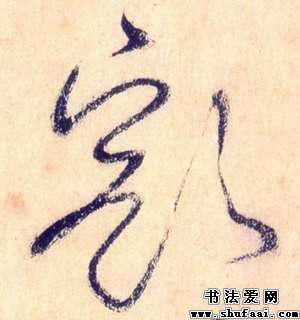 額
书法爱网
www.shufaai.com